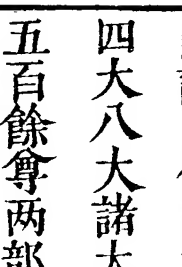 四大八大諸大
五百餘尊两部